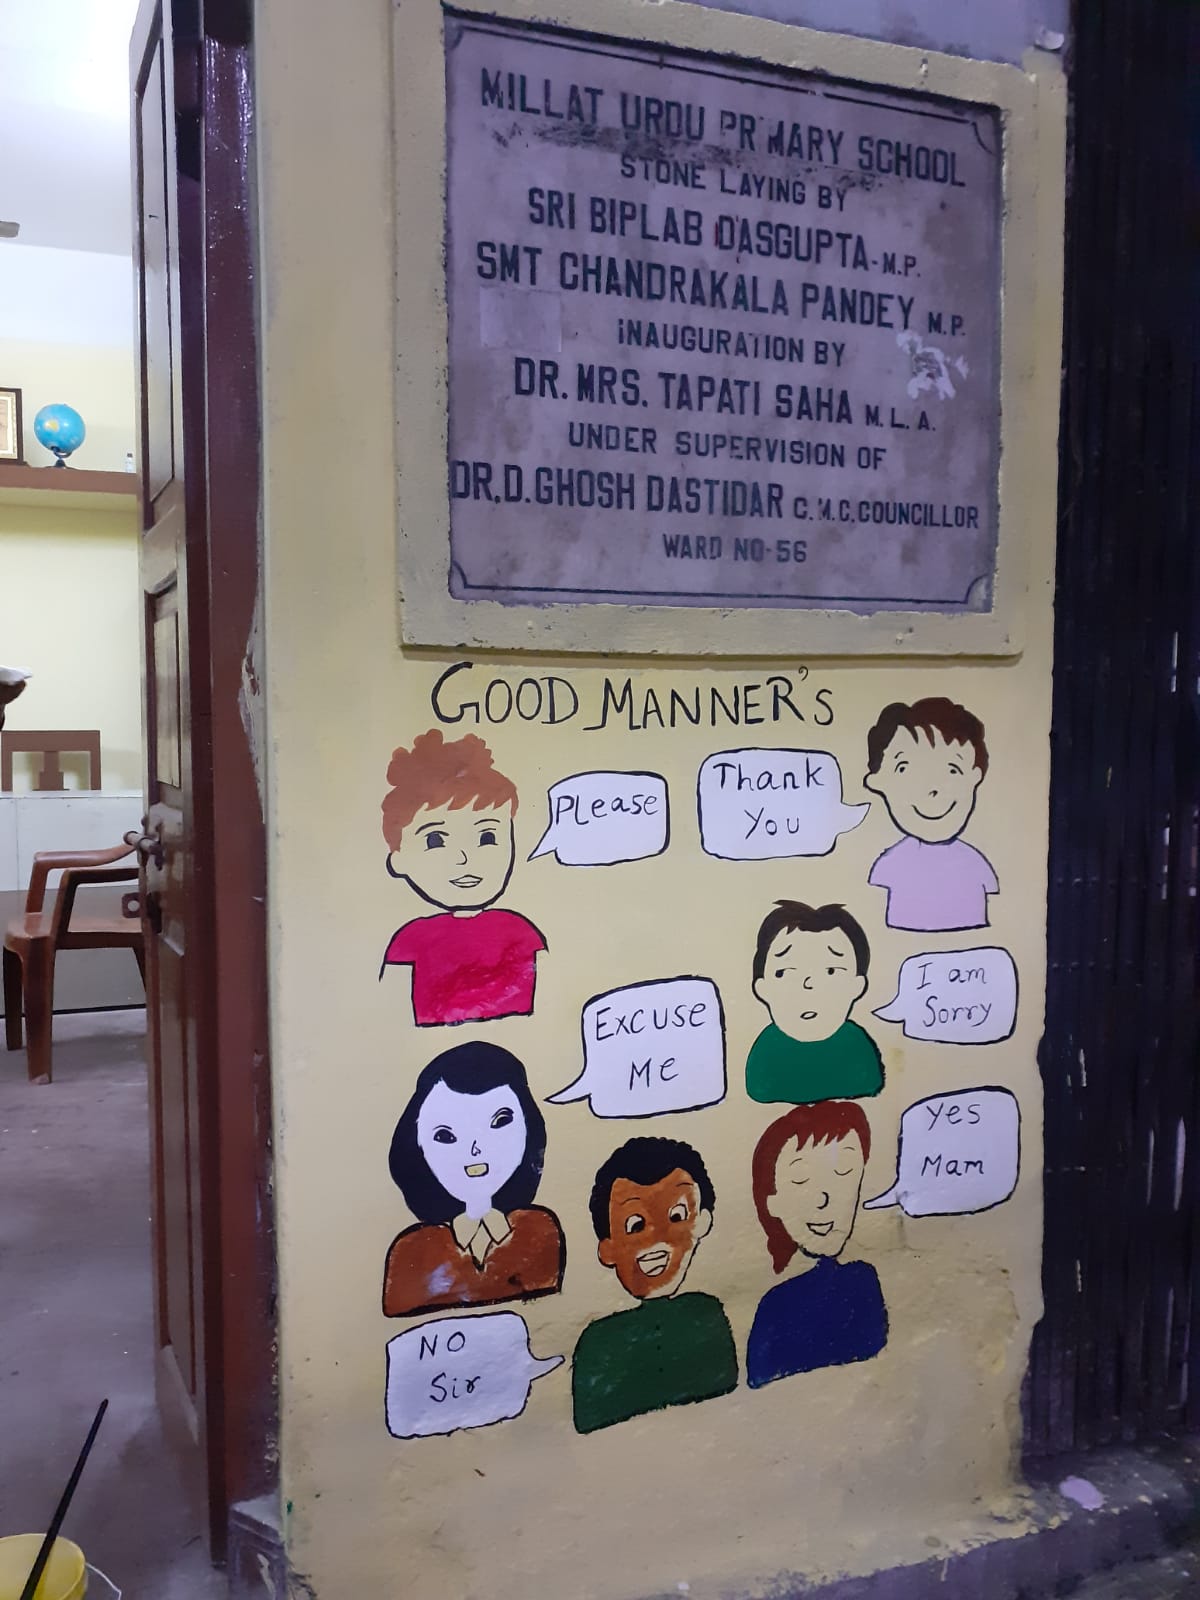 MILLAT URDU PRIMARY SCHOOL
STONE LAYING BY
SRI BIPLAB DASGUPTA-M.P.
SMT CHANDRAKALA PANDEY M.P.
INAUGURATION BY
DR. MRS. TAPATI SAHA M.L.A.
UNDER SUPERVISION OF
DR.D.GHOSH DASTIDAR C.M.C.COUNCILLOR
WARD NO-56
GOOD MANNER'S
Please
Thank
You
I am
Sorry
Excuse
Me
Yes
Mam
NO
Sir